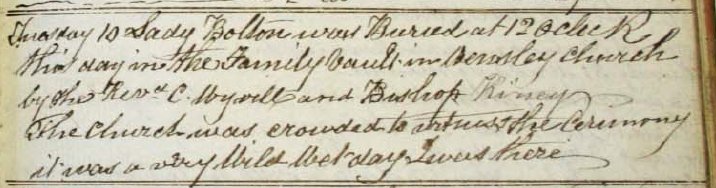 Tuesday 10 Lady Bolton was Buried at 12 oClock
this day in the Family Vault in Wensley Church
by the Revd C. Wyvill and Bishop
The Church was crowded to witness the Cerimony
it was a very Wild Wet day I was there